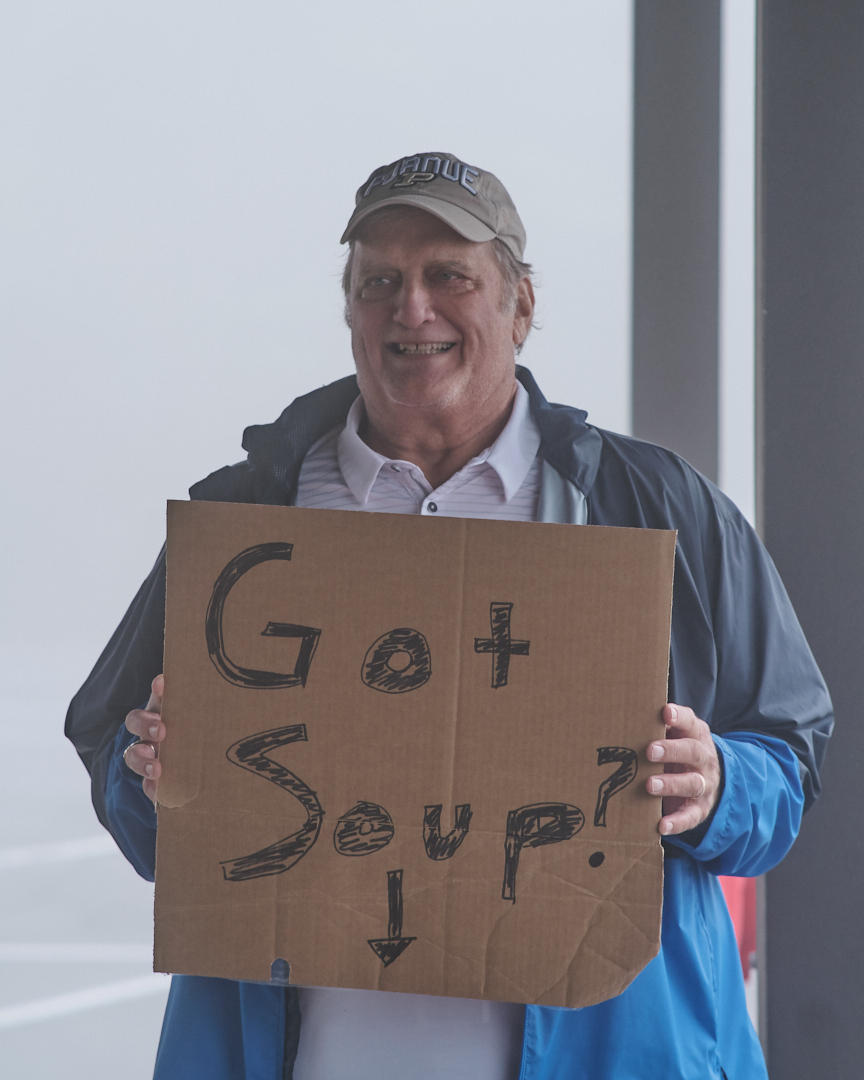 PURDUE
P
Got
Soup?